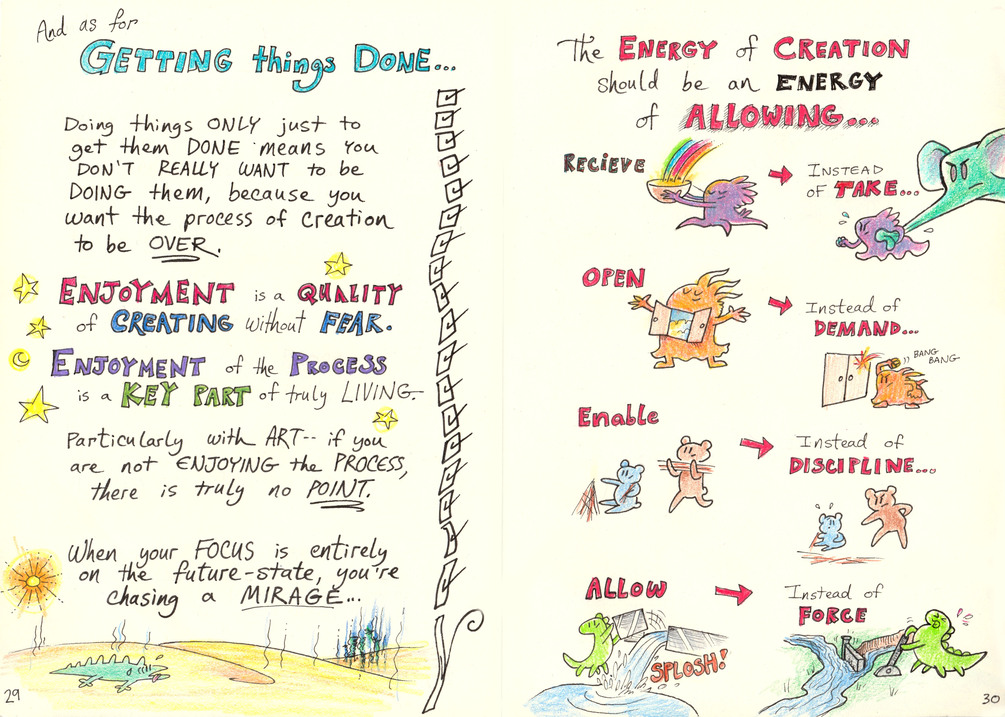 And as for
GETTING things DONE...
Doing things ONLY just to
get them DONE means you
DON'T REALLY WANT to be
DOING them, because you
want the process of Creation
to be OVER.
ENJOYMENT is a QUALITY
of CREATING without FEAR.
ENJOYMENT of the PROCESS
is a KEY PART of truly LIVING.
Particularly with ART-- if you
are not ENJOYING the PROCESS,
there is truly no POINT.
When your FOCUS is entirely
on the future-state, you're
chasing a MIRAGE...
29
The ENERGY of CREATION
should be an ENERGY
of ALLOWING...
RECIEVE
INSTEAD
OF TAKE...
OPEN
Instead of
DEMAND...
BANG
BANG
Enable
Instead of
DISCIPLINE...
ALLOW
Instead of
FORCE
SPLOSH!
30